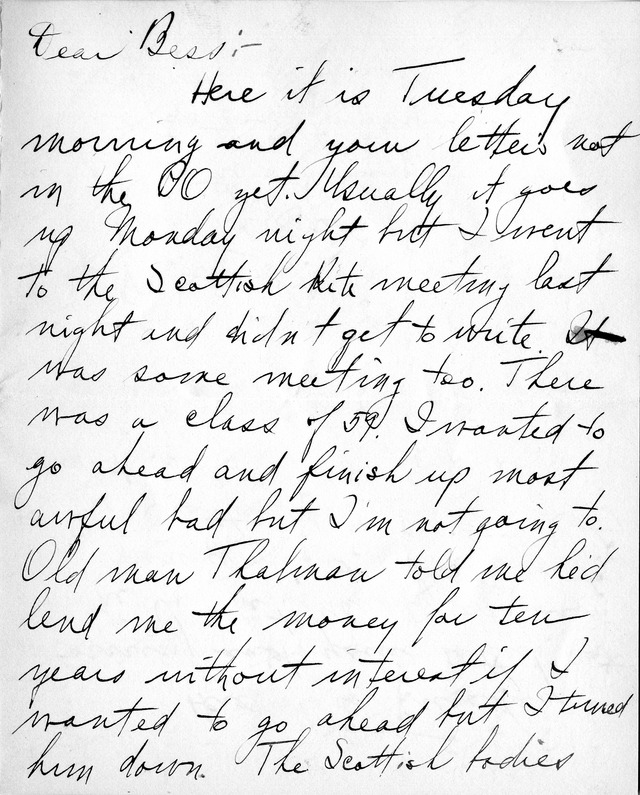 Dear Bess:-
Here it is Tuesday
morning and your letter's not
in the PO yet. Usually it goes
up Monday night but I went
to the Scottish Rite meeting last
night and didn't get to write. It
was some meeting too. There
was a class of 59. I wanted to
go ahead and finish up most
awful bad but I'm not going to.
Old man Thalman told me he'd
lend me the money for ten
years without interest if I
wanted to go ahead but I turned
him down. The Scottish bodies